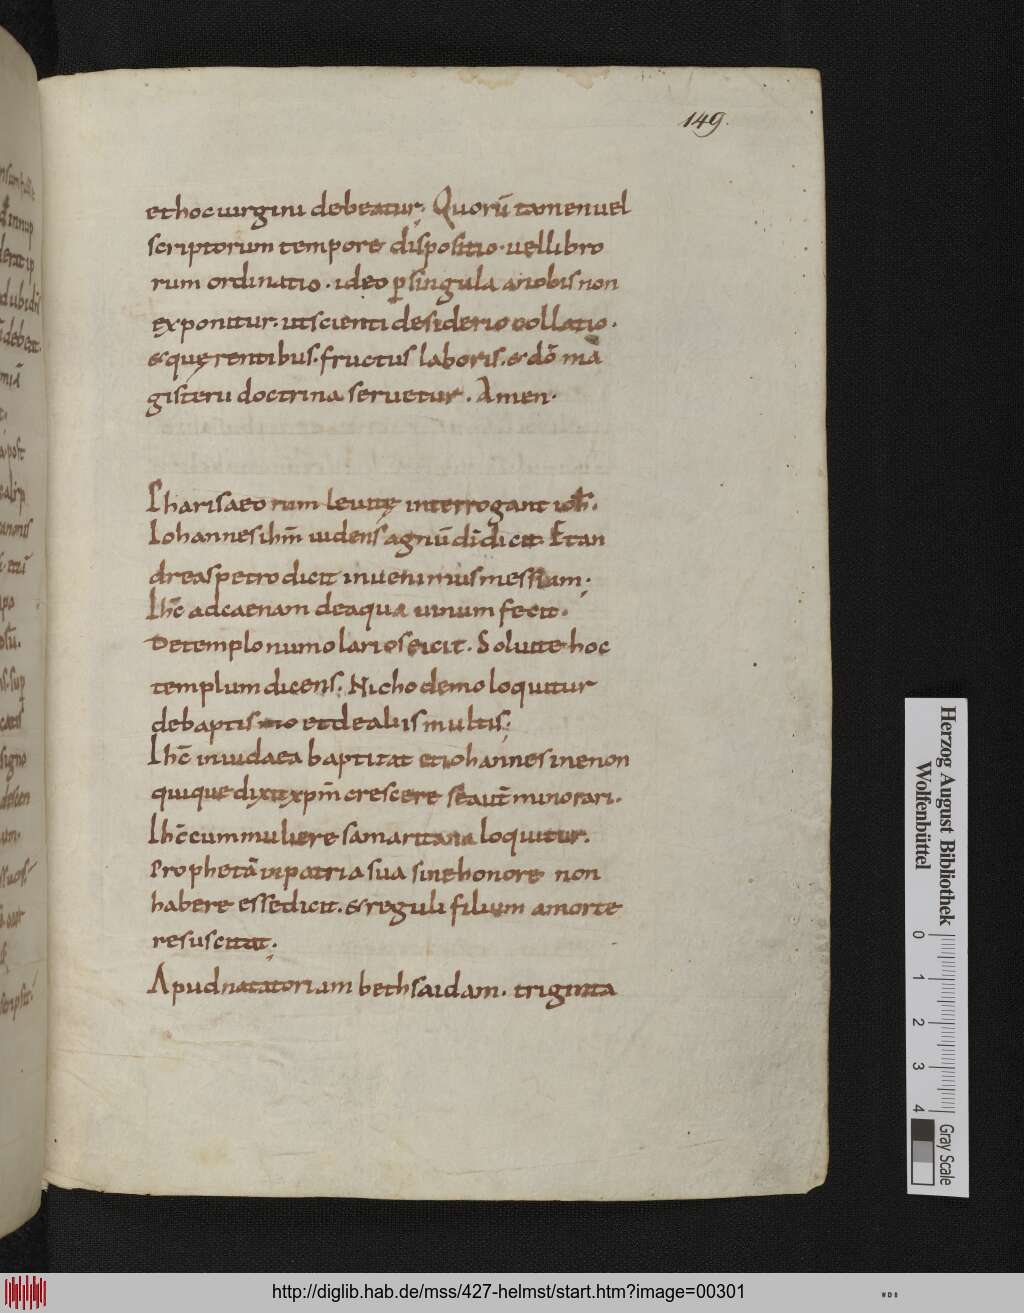 149.
et hoc uirgini debeatur. Quorū tamen uel
scriptorum tempore dispositio. uel libro
rum ordinatio. ideo ꝑ singula a nobis non
exponitur. ut scienti desiderio collatio.
& quęrentibus. fructus laboris. & dō ma
gisterii doctrina seruetur. Amen.
Pharisaeorum leuitę interrogant ioh̄.
Iohannes ihm̄ uidens agnū dī dicit. Et an
dreas petro dicit inuenimus messiam.
Ihc̄ ad caenam de aqua uinum fecit.
De templo numolarios eicit. Soluite hoc
templum dicens. Nichodemo loquitur
de baptismo et de aliis multis.
Ihc̄ in iudaea baptizat et iohannes in enon
quique dixit xpm̄ crescere sē aut̄ minorari.
Ihc̄ cum muliere samaritana loquitur.
Prophetā in patria sua sine honore non
habere esse dicit. & reguli filium a morte
resuscitat.
Apud natatoriam bethsaidam. triginta
Herzog August Bibliothek
Wolfenbüttel
0 1 2 3 4
Gray Scale
http://diglib.hab.de/mss/427-helmst/start.htm?image=00301